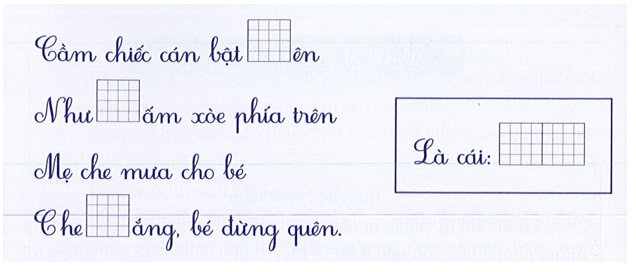 Cầm chiếc cán bật ên
Như ấm xòe phía trên
Mẹ che mưa cho bé
Che ắng, bé đừng quên.
Là cái: